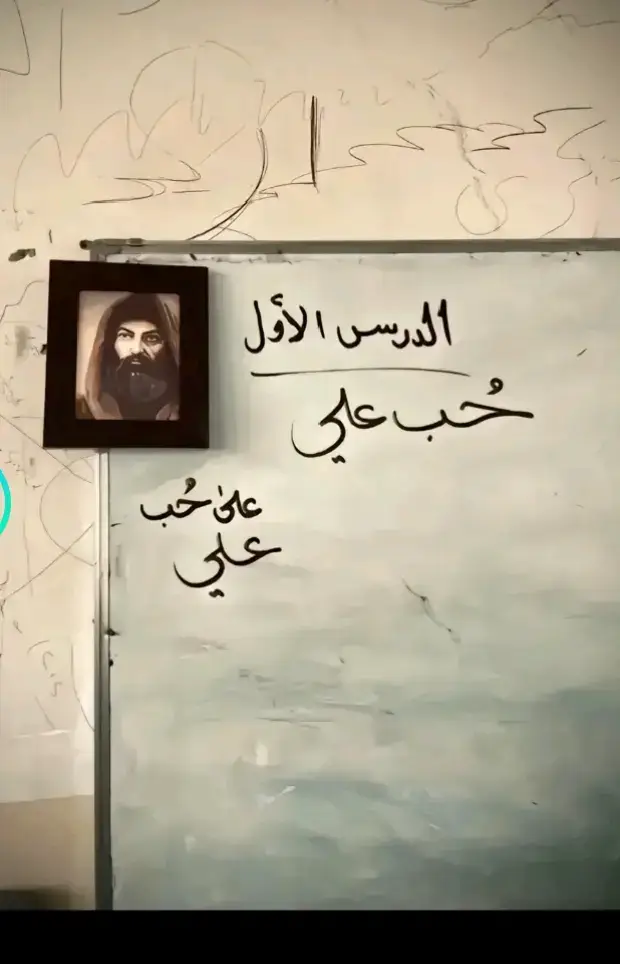 الدرس الأول
حُب علي
علىٰ حُب
علي